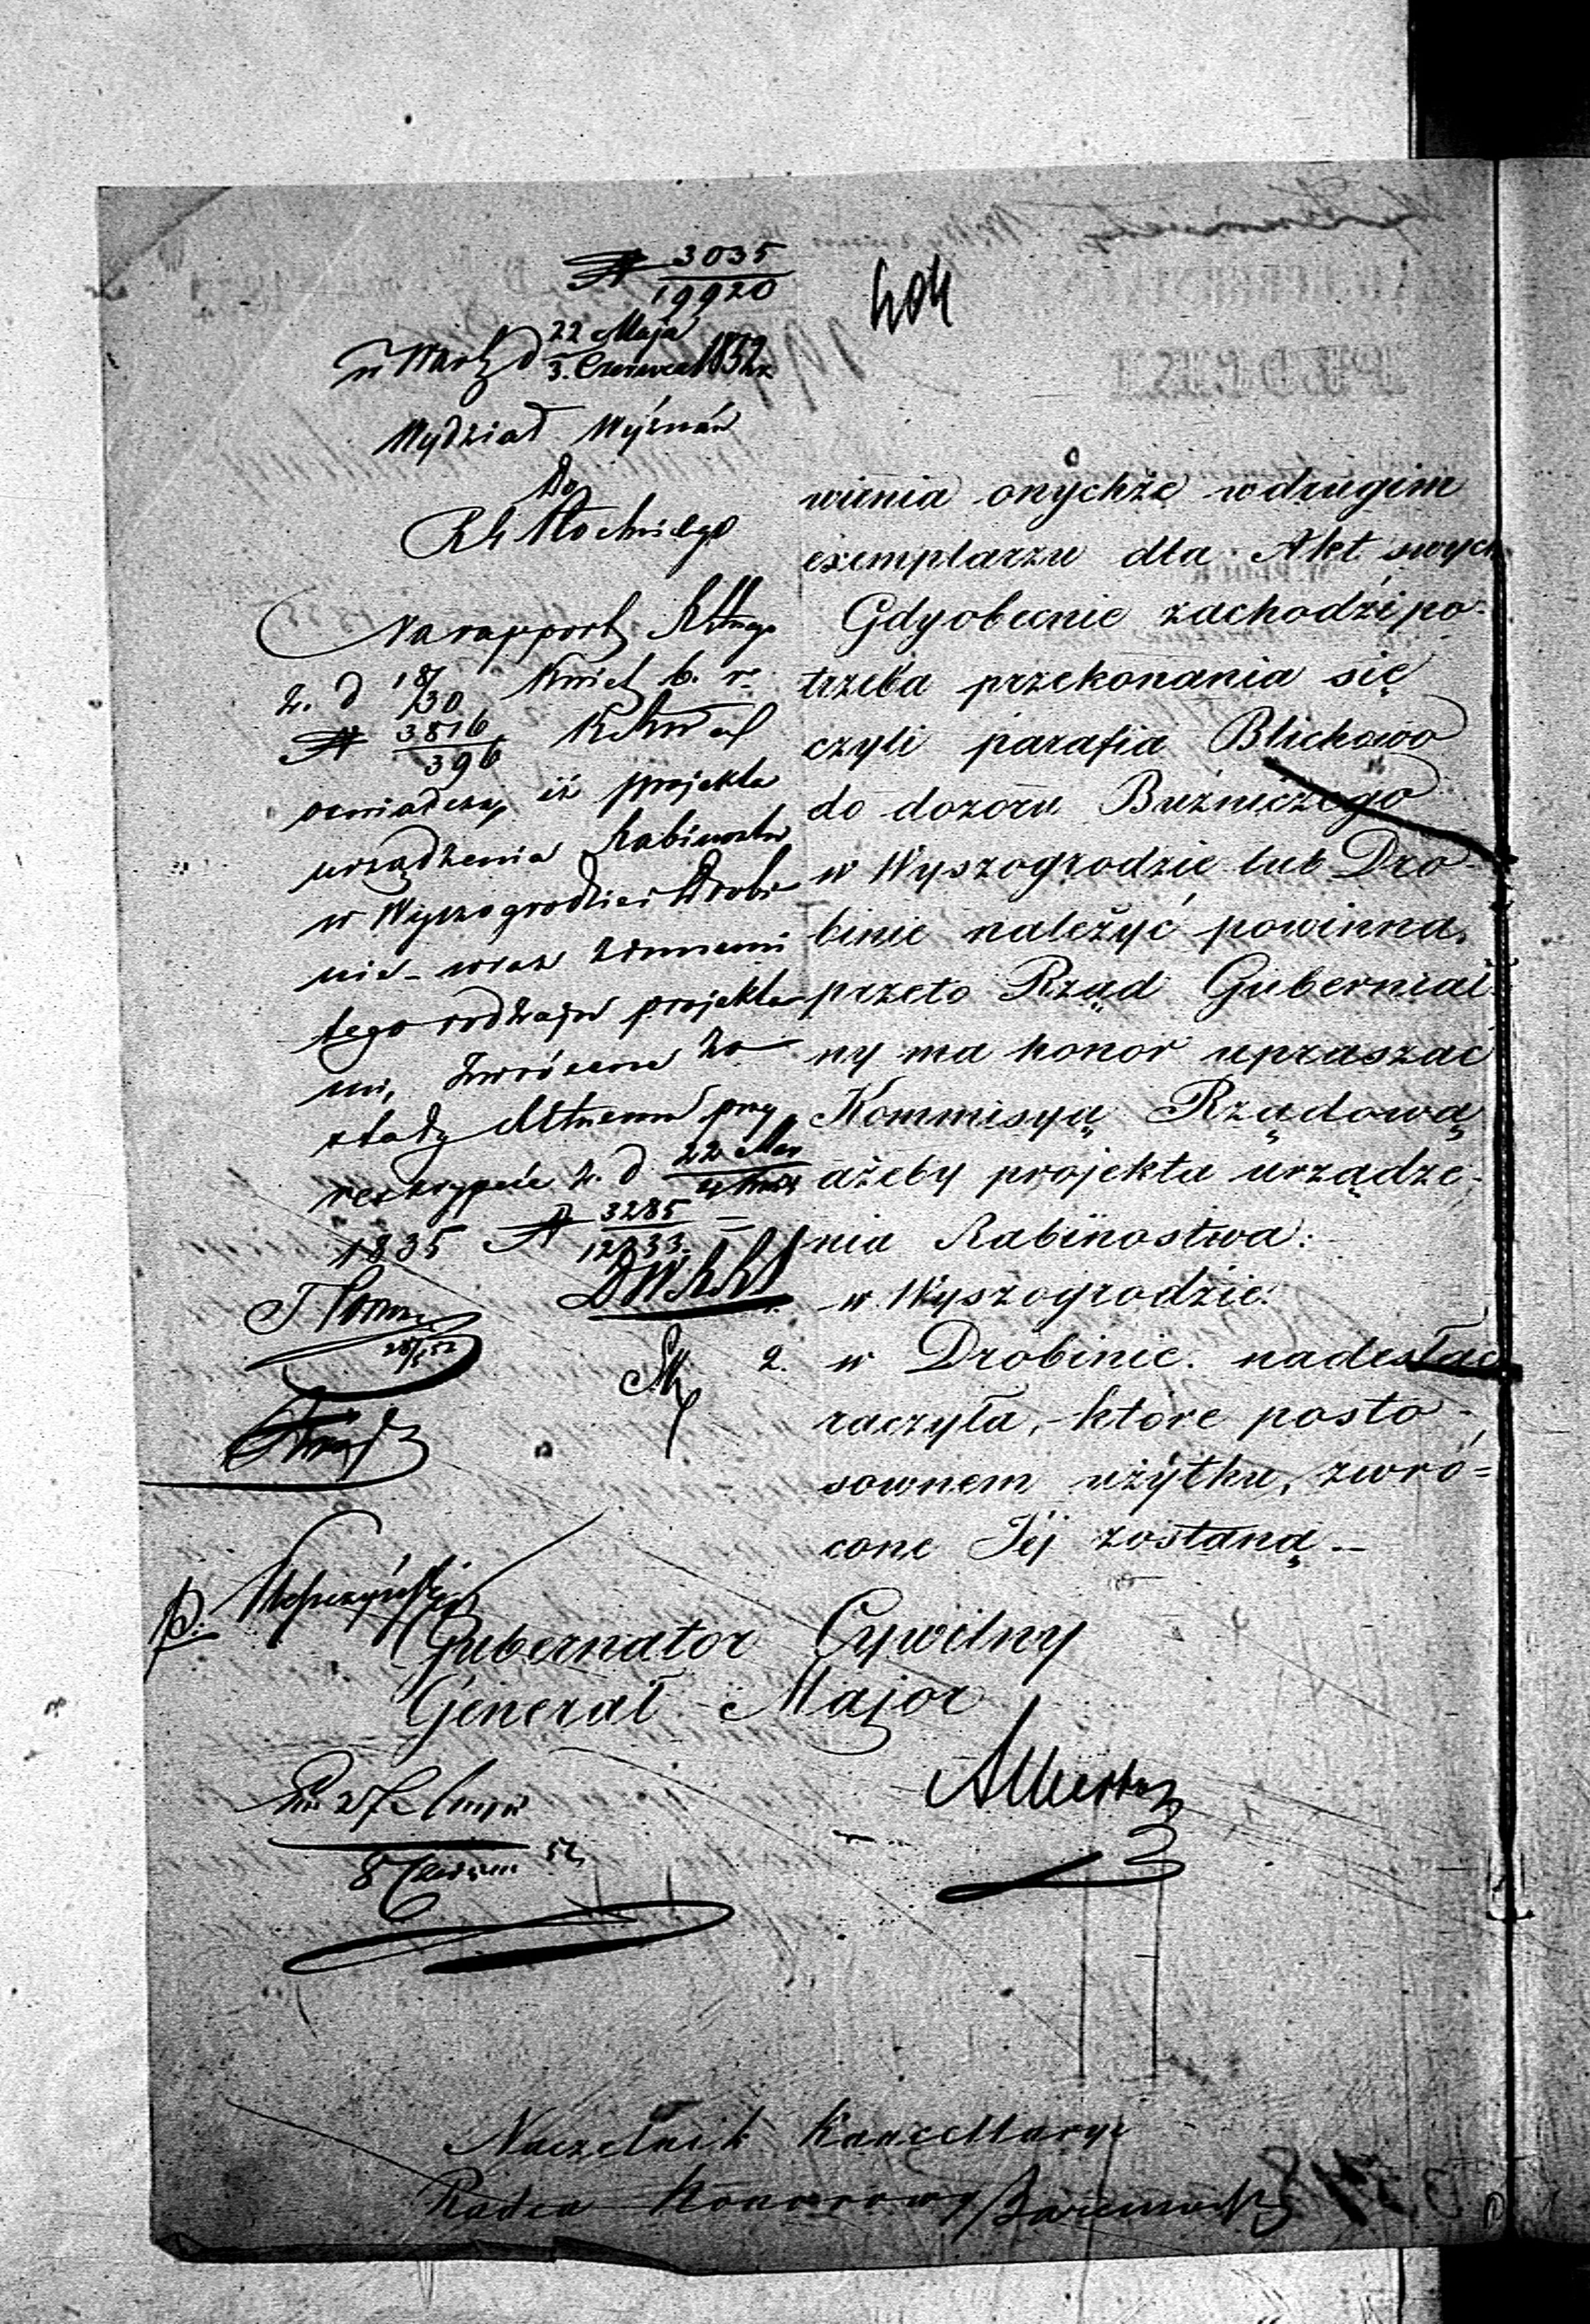 № 3035
19920
404
w Warsz d 22 Maja
3. Czerwca 1852 r
Wydział Wyznań
Do
RG Płockiego
Na rapport RGtnego
z. d 18/30 Kwiet b. r.
№ 3816
396
oświadcza, iż projekta
urządzenia Rabinostw
w Wyszogrodzie i Drobi
nie – wraz z innemi
tego rodzaju projekta
mi, zwrócone zo
stały przy
reskrypcie z. d 22 Mar
1835 № 3285
12733.
28/5 52
wienia onychże w drugim
exemplarzu dla Akt swych
Gdy obecnie zachodzi po-
trzeba przekonania się
czyli parafia Blichowo
do dozoru Bużniczego
w Wyszogrodzie lub Dro-
binie należyć powinna,
przeto Rząd Gubernial
ny ma honor upraszać
Kommisyą Rządową
ażeby projekta urządze-
nia Rabinostwa:
w Wyszogrodzie.
2. w Drobinie. nadesłać
raczyła, które po sto-
sownem użytku, zwró=
cone Jej zostaną. –
Gubernator Cywilny
Generał Major
27 Maja
8 Czerwca 52
Naczelnik Kancellaryi
Radca Honorowy